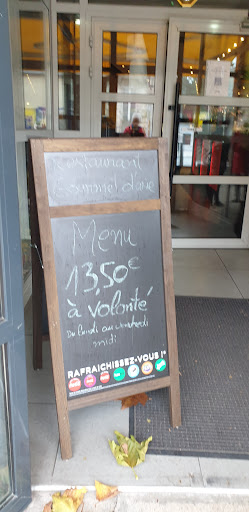 Restaurant
Menu
13,50€
à volonté
Du lundi au vendredi
midi
RAFRAICHISSEZ-VOUS !